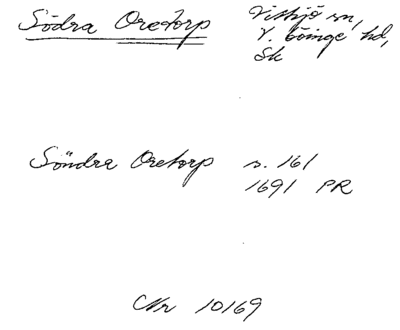 Södra Oretorp Vittsjö sn,
V. Göinge hd,
Sk
Söndra Oretorp s. 161
1691 PR
Nr 10169